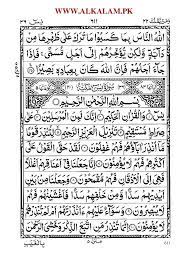 WWW.ALKALAM.PK
اللّٰهُ النَّاسَ بِمَا كَسَبُوْا مَا تَرَكَ عَلٰى ظَهْرِهَا مِنْ
دَآبَّةٍ وَّلٰكِنْ يُّؤَخِّرُهُمْ اِلٰٓى اَجَلٍ مُّسَمًّى ۚ فَاِذَا
جَآءَ اَجَلُهُمْ فَاِنَّ اللّٰهَ كَانَ بِعِبَادِهٖ بَصِيْرًا
بِسْمِ اللّٰهِ الرَّحْمٰنِ الرَّحِيْمِ
يٰسٓ وَالْقُرْاٰنِ الْحَكِيْمِ اِنَّكَ لَمِنَ الْمُرْسَلِيْنَ عَلٰى
صِرَاطٍ مُّسْتَقِيْمٍ تَنْزِيْلَ الْعَزِيْزِ الرَّحِيْمِ لِتُنْذِرَ
قَوْمًا مَّآ اُنْذِرَ اٰبَآؤُهُمْ فَهُمْ غٰفِلُوْنَ لَقَدْ حَقَّ الْقَوْلُ
عَلٰٓى اَكْثَرِهِمْ فَهُمْ لَا يُؤْمِنُوْنَ اِنَّا جَعَلْنَا فِيْٓ اَعْنَاقِهِمْ
اَغْلٰلًا فَهِيَ اِلَى الْاَذْقَانِ فَهُمْ مُّقْمَحُوْنَ وَجَعَلْنَا مِنْۢ بَيْنِ
اَيْدِيْهِمْ سَدًّا وَّمِنْ خَلْفِهِمْ سَدًّا فَاَغْشَيْنٰهُمْ فَهُمْ
لَا يُبْصِرُوْنَ وَسَوَآءٌ عَلَيْهِمْ ءَاَنْذَرْتَهُمْ اَمْ لَمْ تُنْذِرْهُمْ
لَا يُؤْمِنُوْنَ اِنَّمَا تُنْذِرُ مَنِ اتَّبَعَ الذِّكْرَ وَخَشِيَ الرَّحْمٰنَ